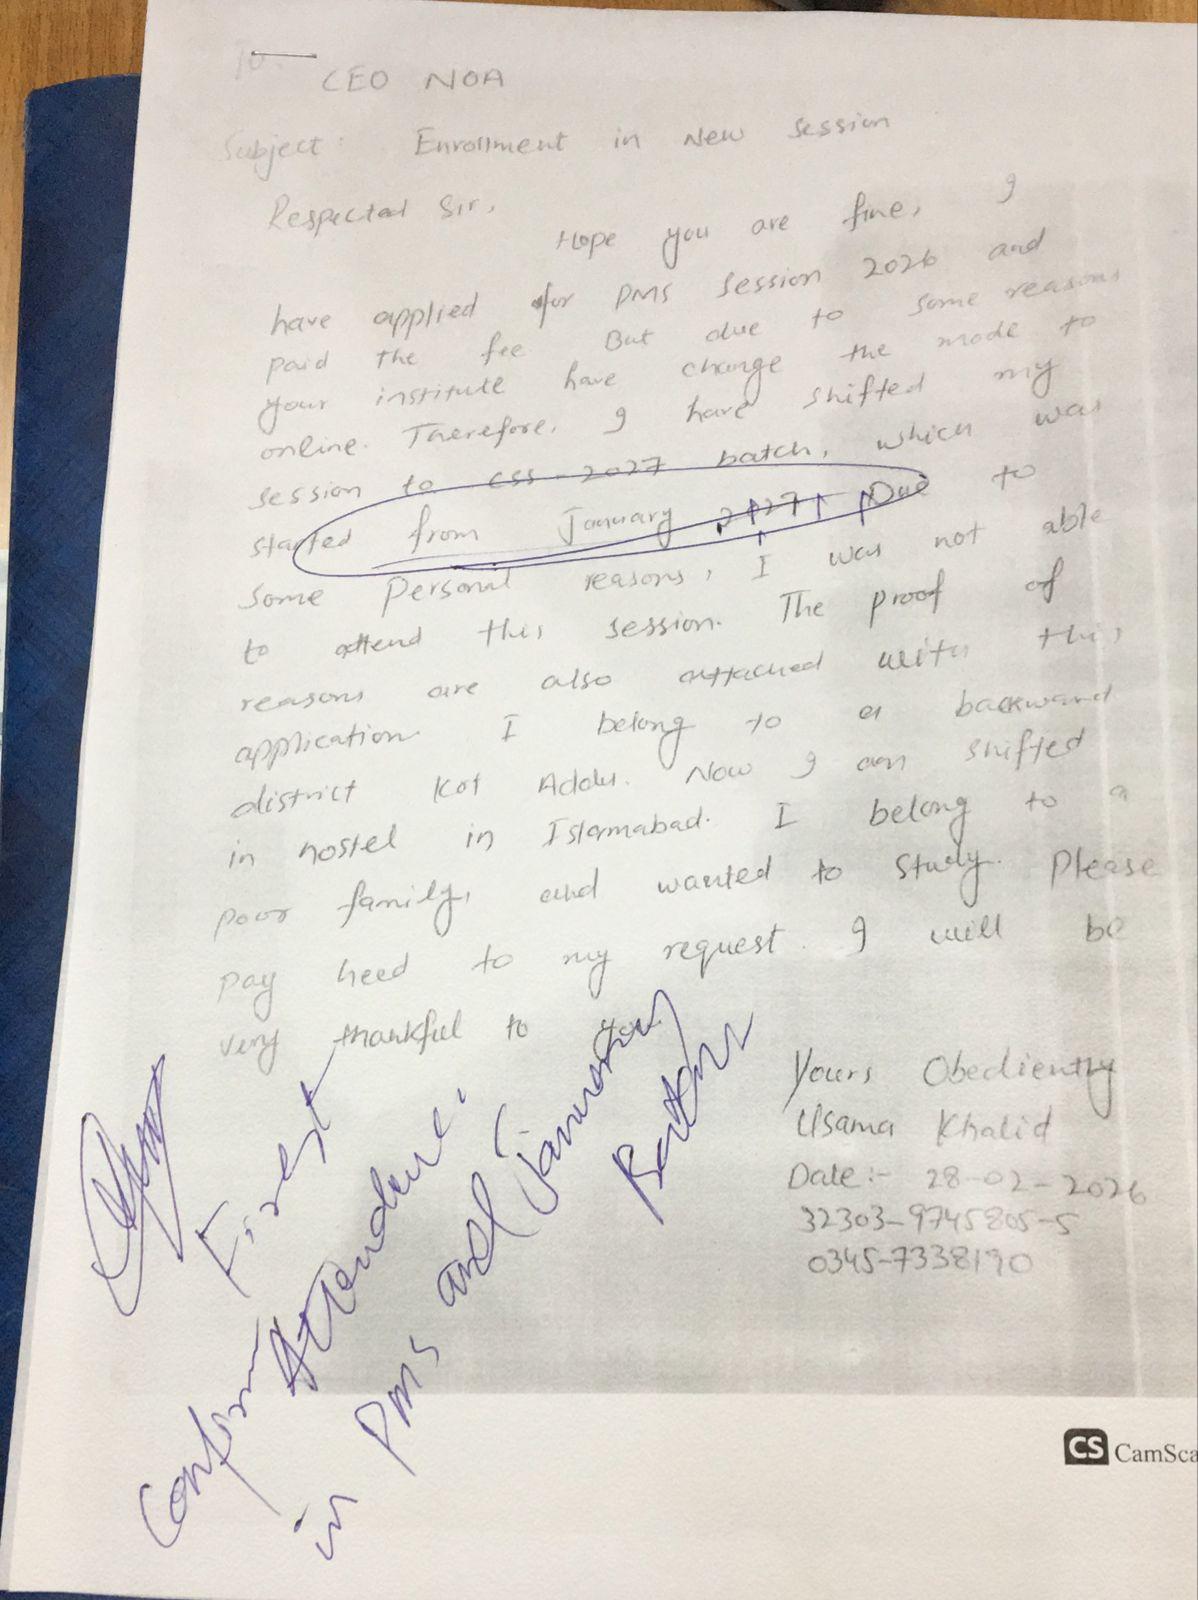 To.
CEO NOA
Subject: Enrollment in New session
Respected Sir,
Hope you are fine, I
have applied for PMS session 2026 and
paid the fee But due to some reasons
your institute have change the mode to
online. Therefore, I have shifted my
session to CSS-2027 batch, which was
started from January 2027, Due to
some personal reasons, I was not able
to attend this session. The proof of
reasons are also attached with this
application. I belong to a backward
district Kot Addu. Now I am shifted
in hostel in Islamabad. I belong to a
poor family, and wanted to study. Please
pay heed to my request. I will be
very thankful to you.
Yours Obediently
Usama Khalid
Date:- 28-02-2026
32303-9745805-5
0345-7338190
First
Confirm Attendance.
in PMS and January
CS CamSca